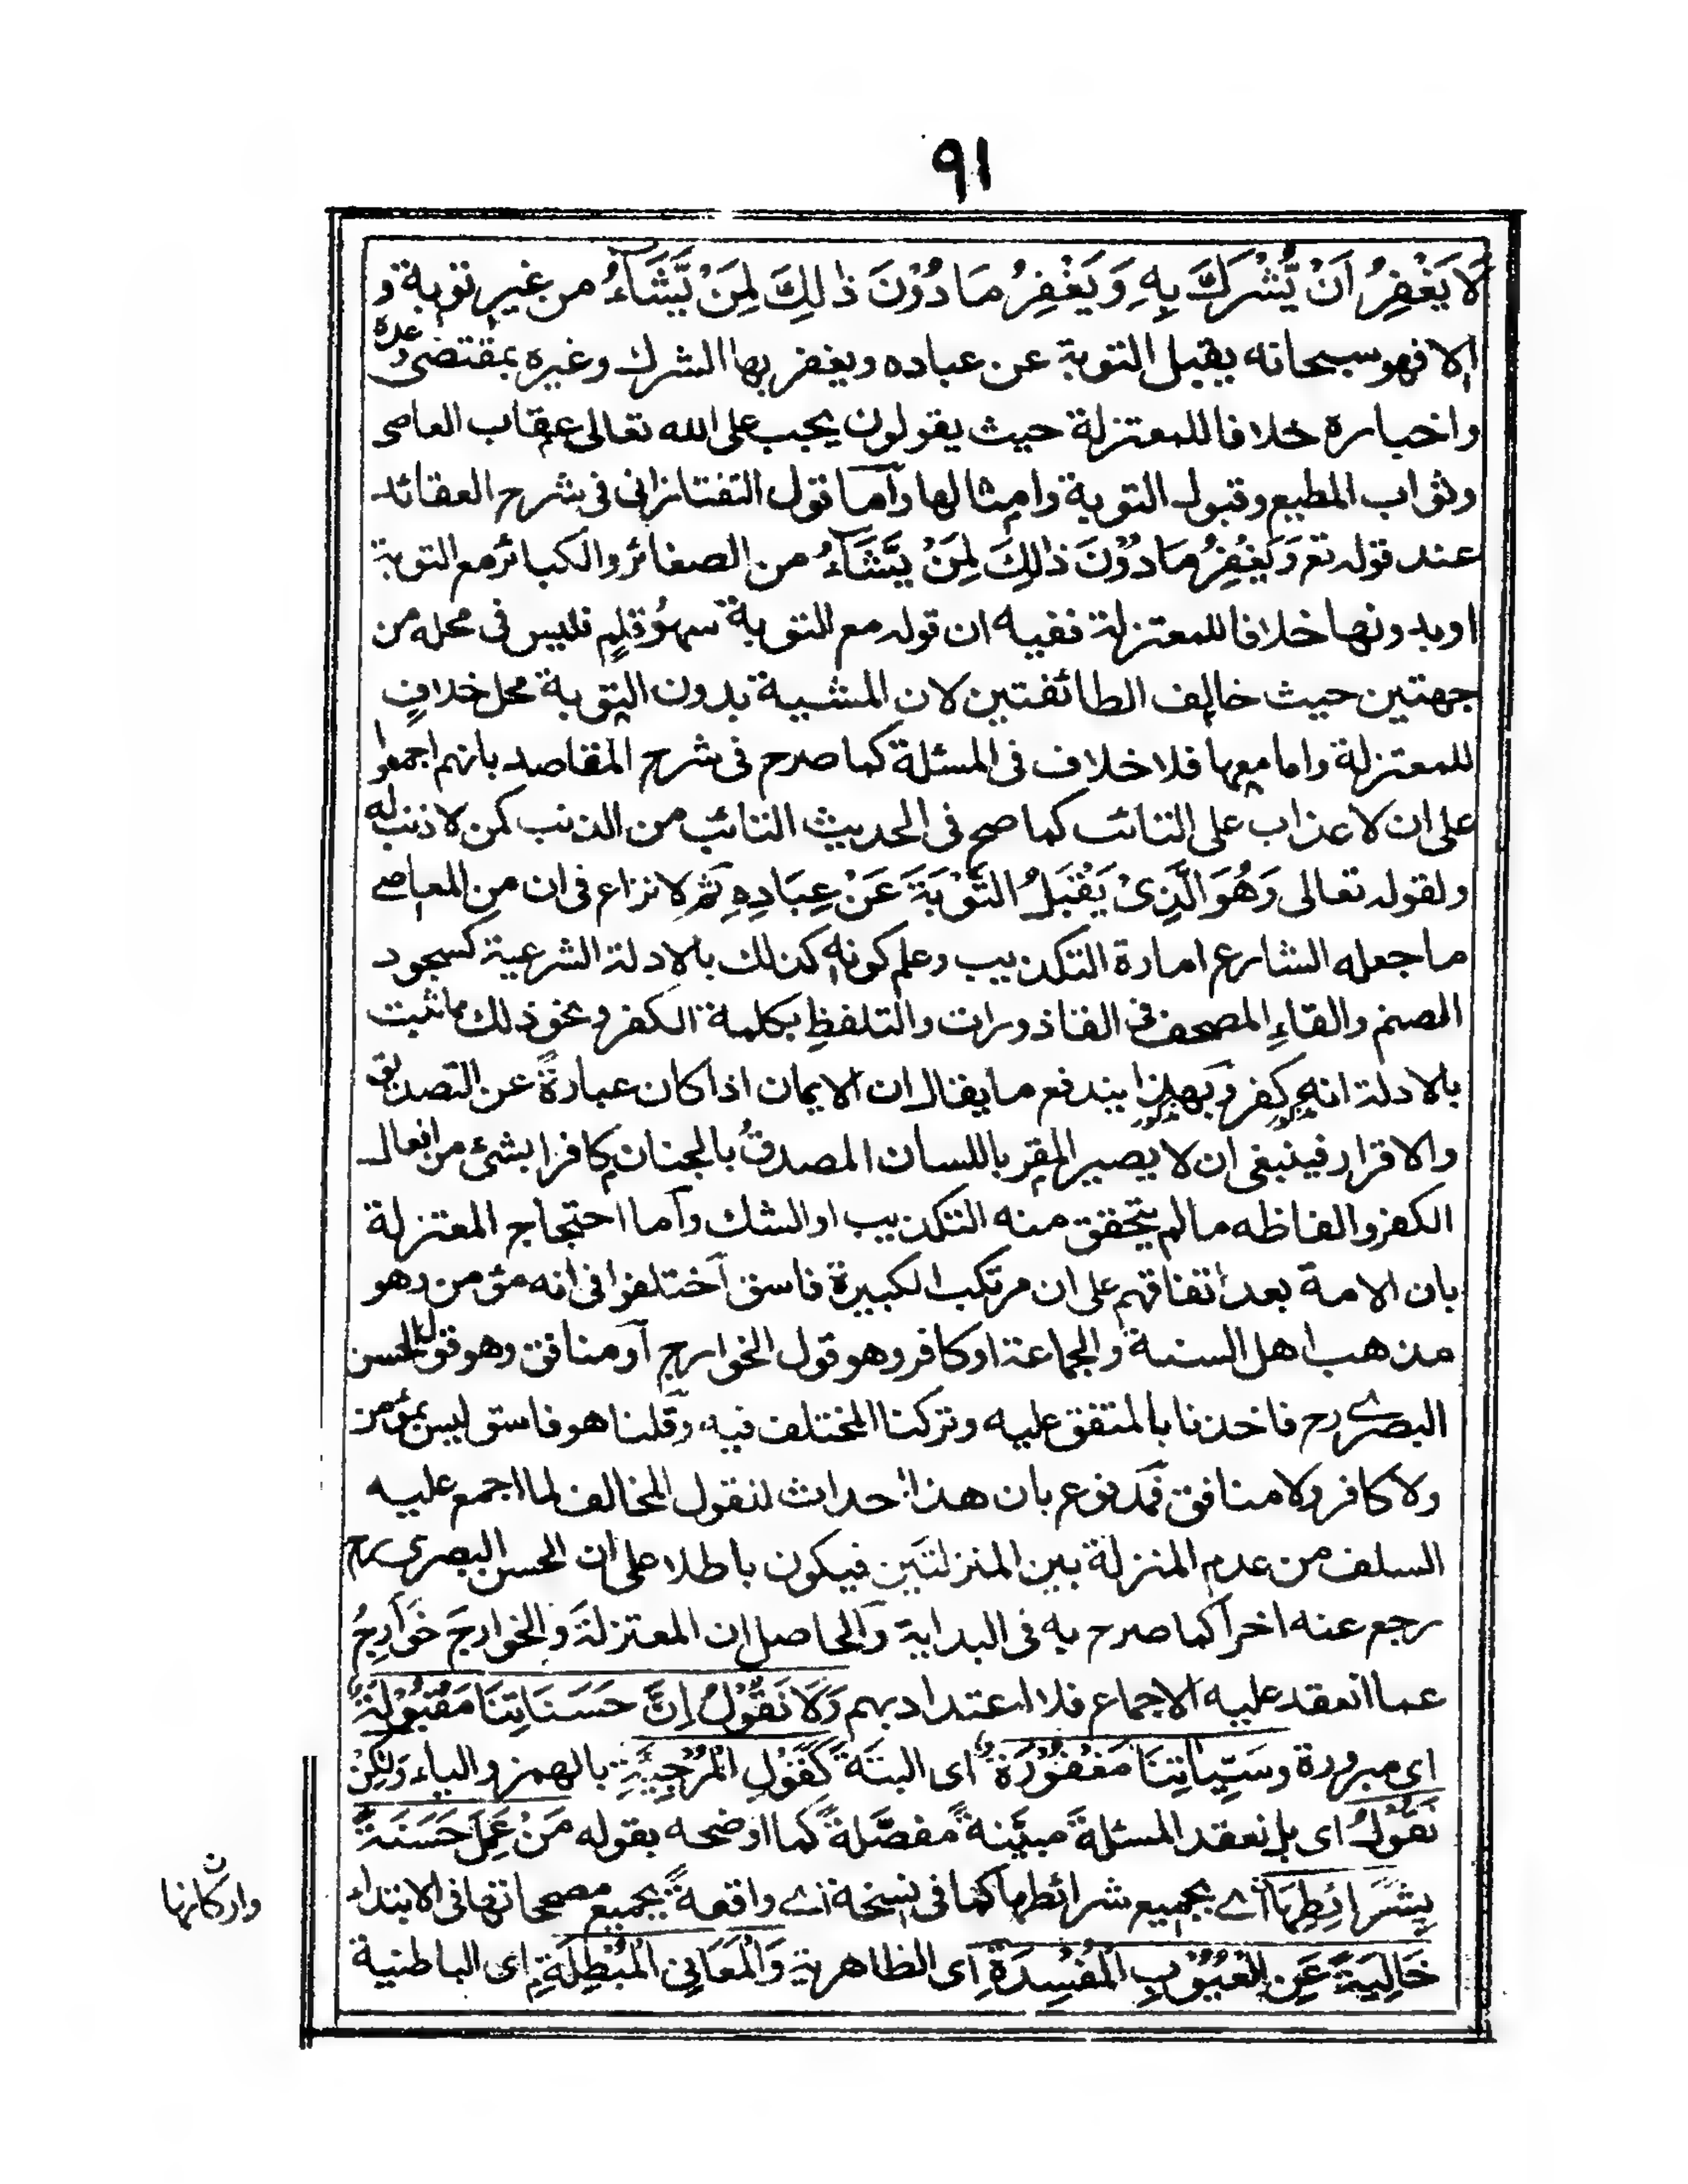 ٩١
لَا يَغْفِرُ اَنْ يُّشْرَكَ بِهٖ وَيَغْفِرُ مَا دُوْنَ ذٰلِكَ لِمَنْ يَّشَآءُ من غير توبة و
الا فهو سبحانه يقبل التوبة عن عباده ويغفر بها الشرك وغيره بمقتضى وعده
واخباره خلافا للمعتزلة حيث يقولون يجب على الله تعالى عقاب العاصى
وثواب المطيع وقبول التوبة وامثالها وآما قول التفتازانى فى شرح العقائد
عند قوله تع وَيَغْفِرُ مَا دُوْنَ ذٰلِكَ لِمَنْ يَّشَآءُ من الصغائر والكبائر مع التوبة
او بدونها خلافا للمعتزلة ففيه ان قوله مع التوبة سهوُ قلمٍ فليس فى محله من
جهتين حيث خالف الطائفتين لان المشيبة بدون التوبة محل خلافٍ
للمعتزلة واما معها فلا خلاف فى المسئلة كما صرح فى شرح المقاصد بانهم اجمعوا
على ان لا عذاب على التائب كما صح فى الحديث التائب من الذنب كمن لا ذنب له
ولقوله تعالى وَهُوَ الَّذِىْ يَقْبَلُ التَّوْبَةَ عَنْ عِبَادِهٖ ثم لا نزاع فى ان من المعاصے
ما جعله الشارع امارة التكذيب وعلم كونه كذلك بالادلة الشرعية كسجود
الصنم والقاءِ المصحف فى القاذورات والتلفظِ بكلمة الكفر ونحو ذلك مما ثبت
بالادلة انه كفر وبهذا يندفع ما يقال ان الايمان اذا كان عبارةً عن التصديق
والاقرار فينبغى ان لا يصير المقر باللسان المصدقُ بالجنان كافرا بشئ من افعال
الكفر والفاظه ما لم يتحقق منه التكذيب او الشك وآما احتجاج المعتزلة
بان الامة بعد اتفاقهم على ان مرتكب الكبيرة فاسق آختلفوا فى انه مؤمن وهو
مذهب اهل السنة والجماعة او كافر وهو قول الخوارج آو منافق وهو قول الحسن
البصرے رح فاخذنا بالمتفق عليه وتركنا المختلف فيه وقلنا هو فاسق ليس بمؤمن
ولا كافر ولا منافق فمدفوع بان هذا احداث لقول المخالف لما اجمع عليه
السلف من عدم المنزلة بين المنزلتين فيكون باطلا على ان الحسن البصرى رح
رجع عنه اخرا كما صرح به فى البداية وآلحاصل ان المعتزلةَ والخوارجَ خَوَارِجُ
عما انعقد عليه الاجماع فلا اعتداد بهم وَلَا نَقُوْلُ اِنَّ حَسَنَاتِنَا مَقْبُوْلَةٌ
اى مبرورة وسَيِّاٰتِنَا مَغْفُوْرَةٌ اى البتة كَقَوْلِ الْمُرْجِيَةِ بالهمز والياء وَلٰكِنْ
نَقُوْلُ اى بل نعقد المسئلةَ مبيَّنةً مفصَّلةً كما اوضحه بقوله مَنْ عَمِلَ حَسَنَةً
بِشَرَائِطِهَا اے بجميع شرائطها كما فى نسخة اے واقعةً بجميع مصححاتها فى الابتداء
خَالِيَةً عَنِ الْعُيُوْبِ الْمُفْسِدَةِ اى الظاهرية وَالْمَعَانِى الْمُبْطِلَةِ اى الباطنية
ن
واركانها